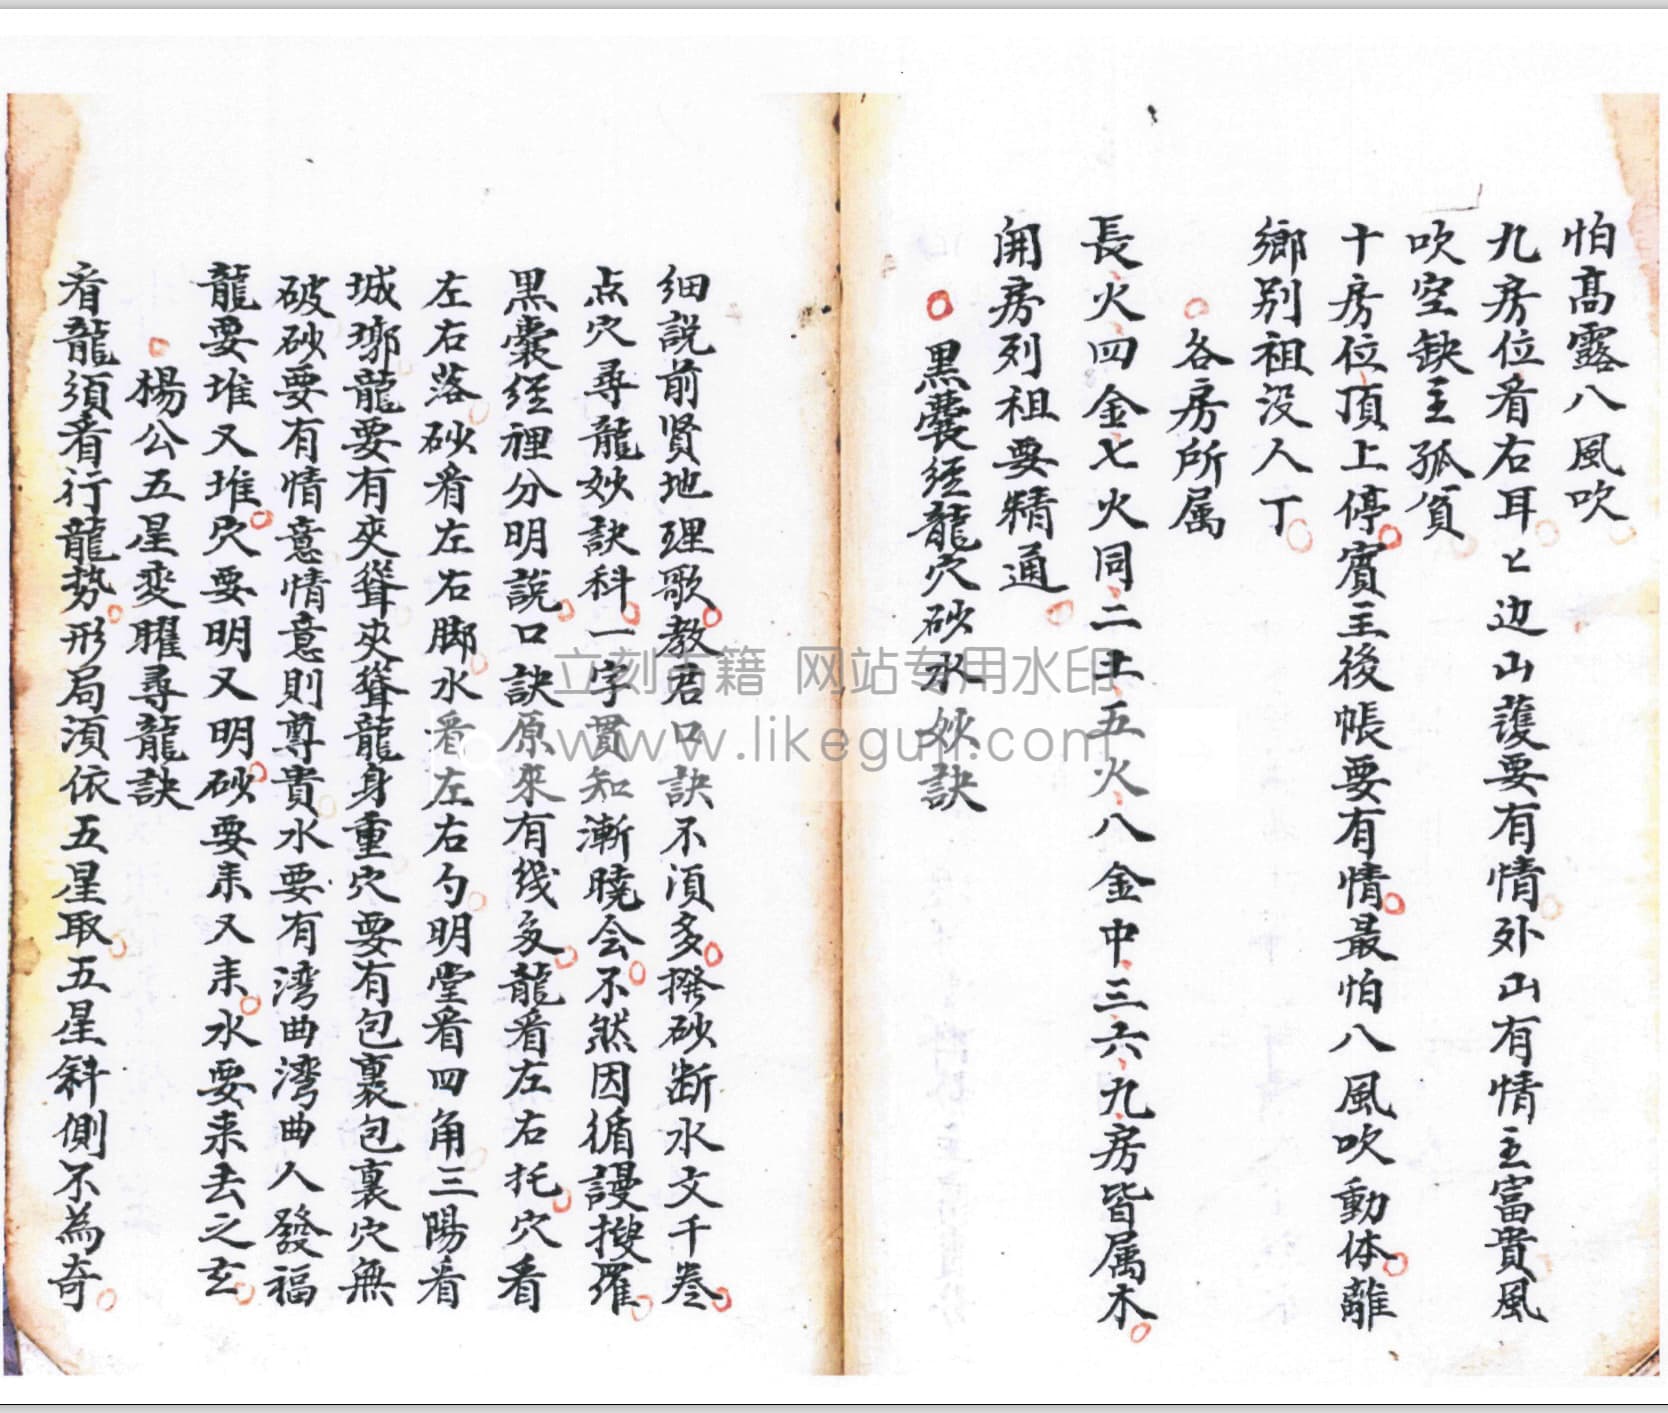 怕高露八風吹
九房位看右耳匕边山護要有情外山有情主富貴風
吹空缺主孤貧
十房位頂上停賓主後帳要有情最怕八風吹動体離
鄉别祖没人丁
各房所属
長火四金七火同二土五火八金中三六九房皆属木
開房列祖要精通
黑囊经龍穴砂水妙訣
细説前賢地理歌教君口訣不湏多撥砂断水文千卷
点穴尋龍妙訣科一字貫知漸曉会不然因循謾搜羅
黑囊经裡分明説口訣原來有线多龍看左右托穴看
左右落砂看左右脚水看左右勺明堂看四角三陽看
城墎龍要有夾聳夾聳龍身重穴要有包裹包裹穴無
破砂要有情意情意則尊貴水要有湾曲湾曲人發福
龍要堆又堆穴要明又明砂要来又来水要来去之玄
楊公五星变曜尋龍訣
看龍須看行龍勢形局湏依五星取五星斜側不為奇
立刻古籍 网站专用水印
www.likeguji.com